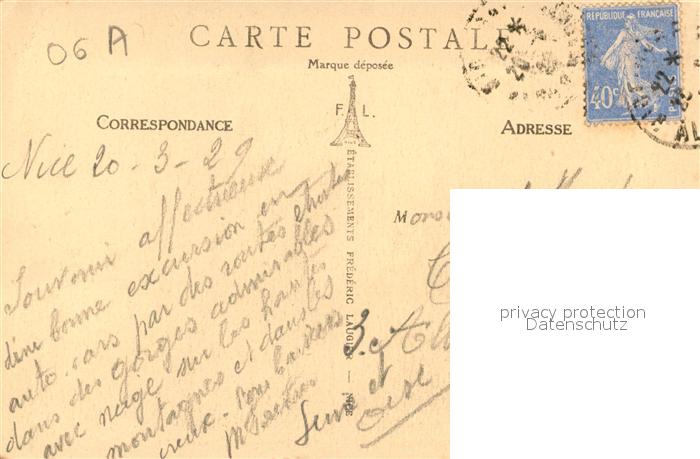 06 A
CARTE POSTALE
Marque déposée
F. L.
CORRESPONDANCE
ADRESSE
RÉPUBLIQUE FRANÇAISE
40c
Nice 20-3-29
Souvenir affectueux
d'une bonne excursion en
auto-cars par des routes
dans des gorges admirables
avec neige sur les hautes
montagnes et dans les
creux. Bons baisers
ÉTABLISSEMENTS FRÉDÉRIC LAUGIER — NICE
Mons
Seine et
Oise
privacy protection
Datenschutz